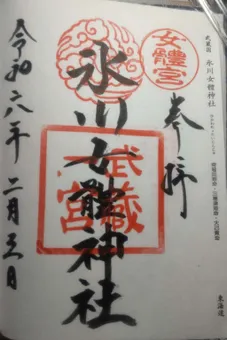 武蔵國 氷川女體神社
東海道
奉拝
女體宮
氷川女體神社
武蔵一宮
令和六年 二月三日